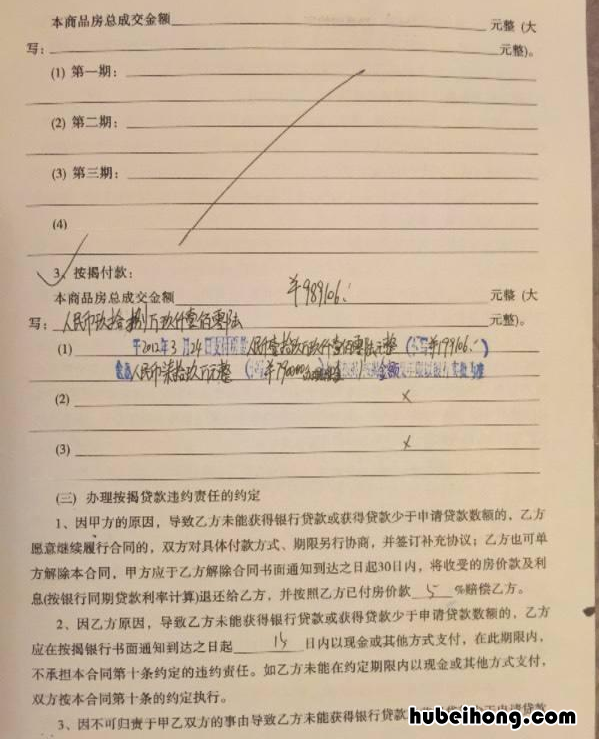 本商品房总成交金额 元整 (大
写: 元整)。
(1) 第一期:
(2) 第二期:
(3) 第三期:
(4)
3、按揭付款:
本商品房总成交金额 ¥989106. 元整 (大
写: 人民币玖拾捌万玖仟壹佰零陆 元整)。
(1) 于2012年3月24日支付 人民币壹拾玖万玖仟壹佰零陆元整 (小写¥199106.)
人民币柒拾玖万元整 (小写¥790000 金额 年限以银行 为准
(2) ×
(3) ×
(三) 办理按揭贷款违约责任的约定
1、因甲方的原因，导致乙方未能获得银行贷款或获得贷款少于申请贷款数额的，乙方
愿意继续履行合同的，双方对具体付款方式、期限另行协商，并签订补充协议；乙方也可单
方解除本合同，甲方应于乙方解除合同书面通知到达之日起30日内，将收受的房价款及利
息(按银行同期贷款利率计算)退还给乙方，并按照乙方已付房价款 5 %赔偿乙方。
2、因乙方原因，导致乙方未能获得银行贷款或获得贷款少于申请贷款数额的，乙方
应在按揭银行书面通知到达之日起 15 日内以现金或其他方式支付，在此期限内，
不承担本合同第十条约定的违约责任。如乙方未能在约定期限内以现金或其他方式支付，
双方按本合同第十条的约定执行。
3、因不可归责于甲乙双方的事由导致乙方未能获得银行贷款 申请贷款
hubeihong.com